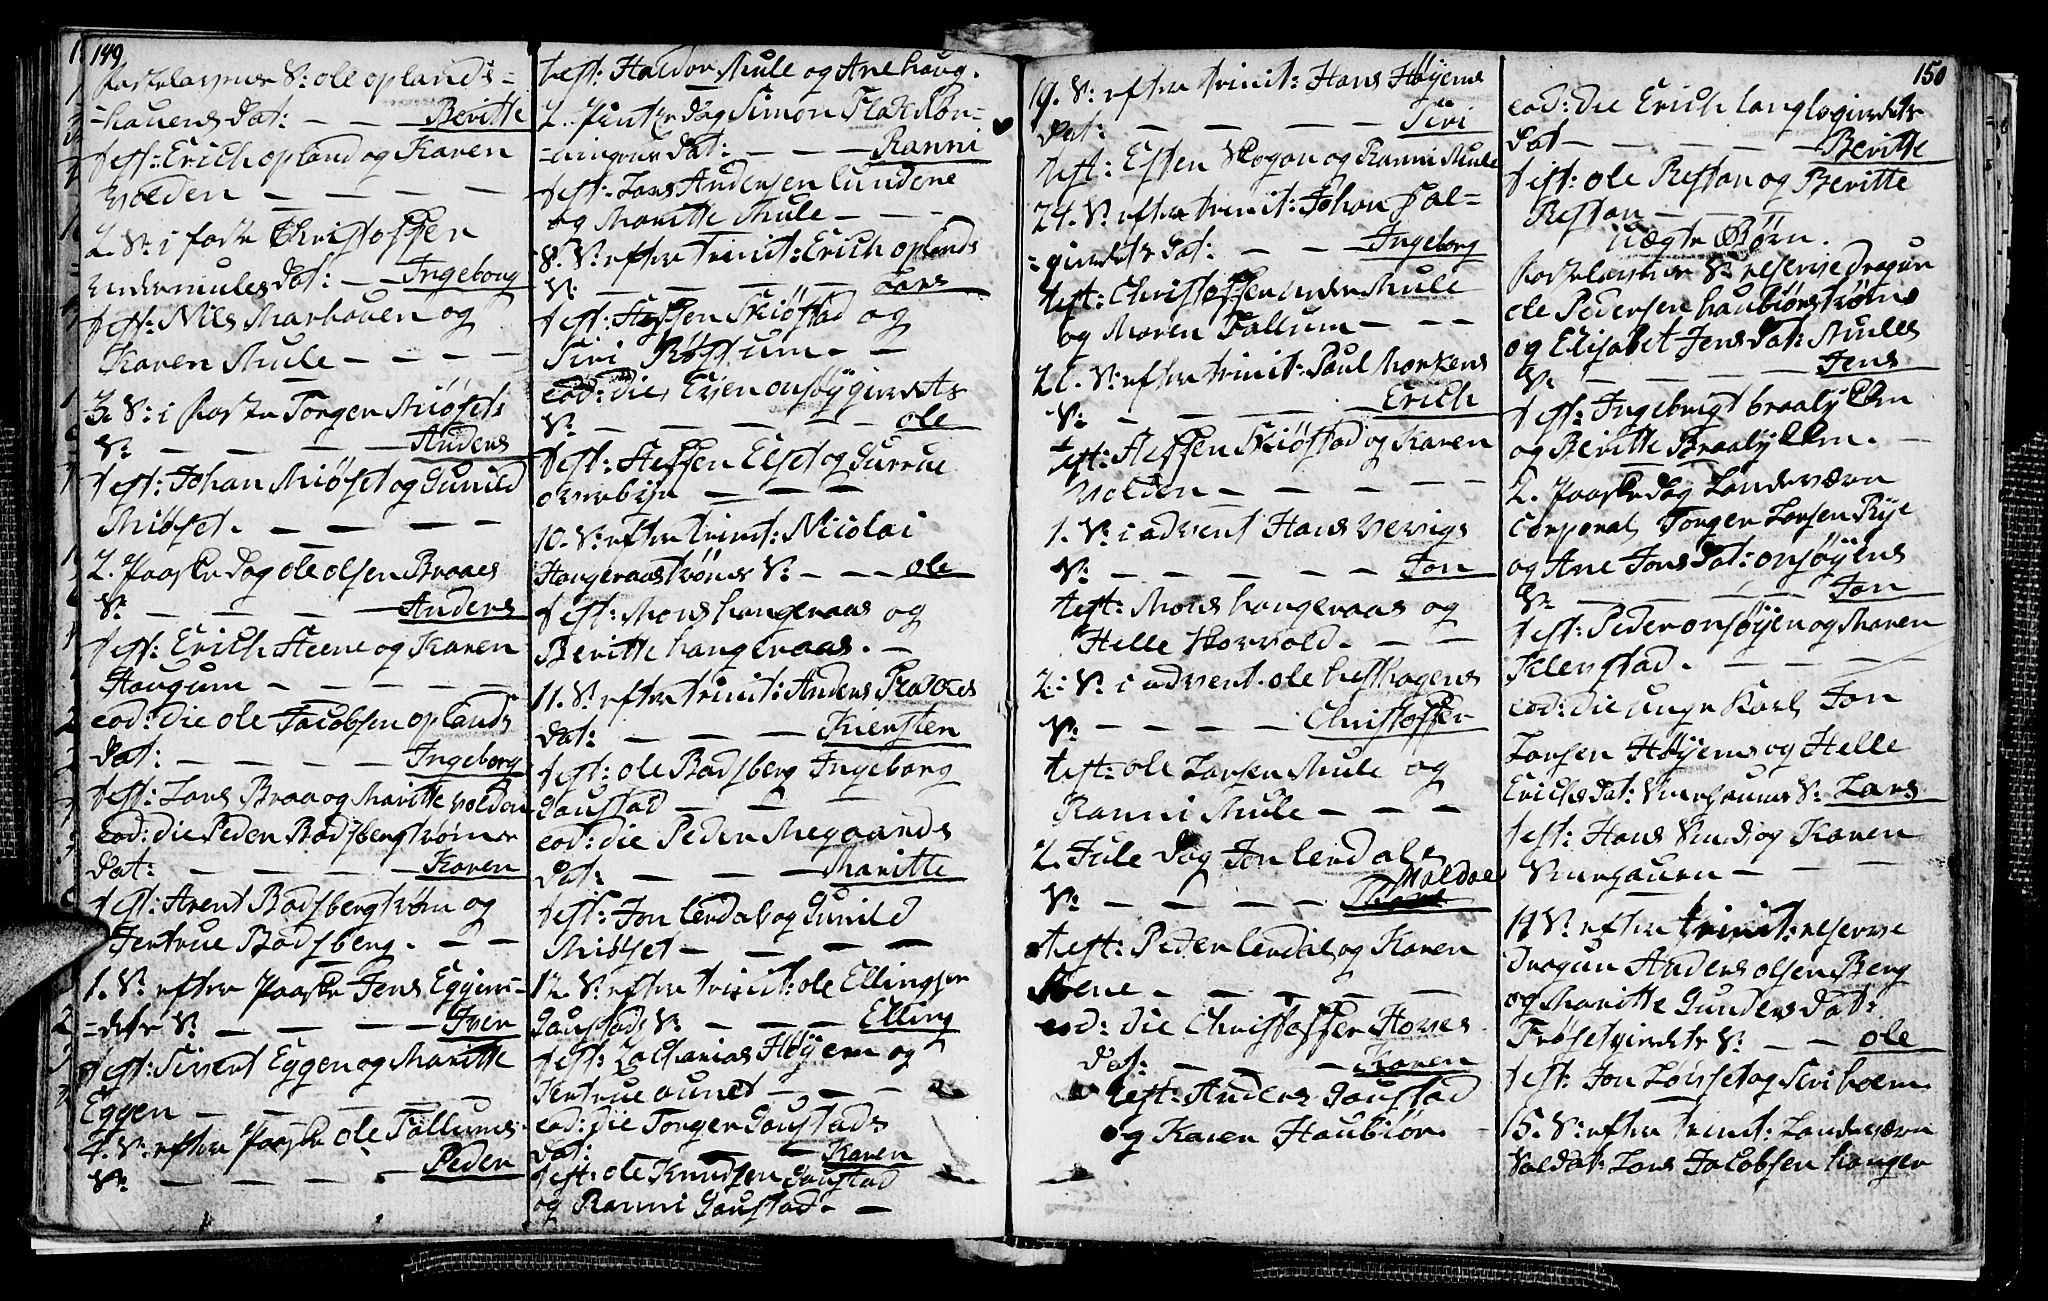 149
Fastelavens S: ole oplands=
=hauens dat: — — Beritte
test: Erich opland og Karen
Volden — — — —
2. S: i faste Christoffer
undermules dat: — — Ingeborg
test: Nils Marhauen og
Karen Mule — — — —
3. S: i faste Torger Miøsets
S: — — — — Anders
test: Johan Miøset og Gunild
Miøset. — — — —
2. Paaske dag ole olsen Braaes
S: — — — — Anders
test: Erich Steene og Karen
Haugum — — — — —
eod: die ole Jacobsen oplands
dat: — — — — — Ingeborg
test: Lars Braa og Maritte volden
eod: die Peder Badsbergtrøens
dat: — — — — — Karen
test: Arent Badsbergtrøen og
Jertrue Badsberg. — —
1. S: efter Paaske Jens Eggens=
=dets S: — — — — Iver
test: Sivert Eggen og Maritte
Eggen — — — — —
4. S: efter Paaske ole Fallums
S: — — — — — Peder
test: Haldor Mule og Ane haug.
2. Pintze dag Simon
dat: — — — Ranni
test: Lars Andersen Lundene
og Maritte Mule — — —
8. S: efter trinit: Erich oplands
S: — — — — — Lars
test: Steffen Skiøstad og
Siri Røstum — —
eod: die, Even onsøygierdets
S: — — — — — ole
test: Steffen Elset og Gurrue
overbye — — — —
10. S: efter trinit: Nicolai
Hangeraastrøens S: — — — ole
test: Mons hangeraas og
Beritte hangeraas. —
11. S: efter trinit: Anders
dat: — — — — Kiersten
test: ole Badsberg Ingeborg
Gaustad — — — —
eod: die Peder Megaards
dat: — — — — Maritte
test: Jon lerdal og Gunild
Miøset — — — —
12. S: efter trinit: ole Ellingsen
Gaustads S: — — — Elling
test: Zacharias Høyem og
Jertrue aunet — — —
eod: die Torger Gaustads
dat: — — — Karen
test: ole Knudsen Gaustad
og Ranni Gaustad. —
19. S: efter trinit: Hans Høyems
dat: — — — — — Siri
test: Esten Skogan og Ranni Mule
24. S: efter trinit: Johan Sal=
=gierdets dat: — — — Ingeborg
test: Christoffer underMule
og Maren Fallum — — —
26. S: efter trinit: Paul Morkens
S: — — — — Erich
test: Steffen Skiøstad og Karen
Volden — — — — —
1. S: i advent Hans Vevigs
S: — — — — — Jon
test: Mons hangeraas og
Helle Korvold. — — —
2: S: i advent ole hesthagens
S: — — — — Christoffer
test: ole Larsen Mule og
Ranni Mule — — —
2. Jule dag Jon lerdals
Maldoe
S: — — — —
test: Peder lerdal og Karen
Stene — — — — —
eod: die Christoffer Hoves
dat: — — — — Karen
test: Anders Gaustad
og Karen Haubiør. —
150
eod: die Erich langlogierdets
dat — — — — — Beritte
test: ole Restan og Beritte
Restan — — —
Uægte Børn.
Fastelavens S: reserve dragun
ole Pedersen haubiørstrøens
og Elisabet Jens dat: Mules
S: — — — — — Jens
test: Ingebrigt braalykken
og Beritte Braalykken. —
2. Paaske dag Landeværn
Corporal Torger Larsen Rye
og Ane Jons dat: onsøyens
S: — — — — — Jon
test: Peder onsøyen og Maren
Fllenstad. — — — —
eod: die unge Karl Jon
Larsen Høyems og Helle
Erichs dat: S: Lars
test: Hans og Karen
— —
14 S: efter trinit: reserve
Dragun Anders olsen Berg
og Maritte Gunders dat:
Frøsetgierdets S: — — ole
test: Jon Lørset og Siri hoem
15. S: efter trinit: Landeværn
Soldat: Lars Jacobsen hanger